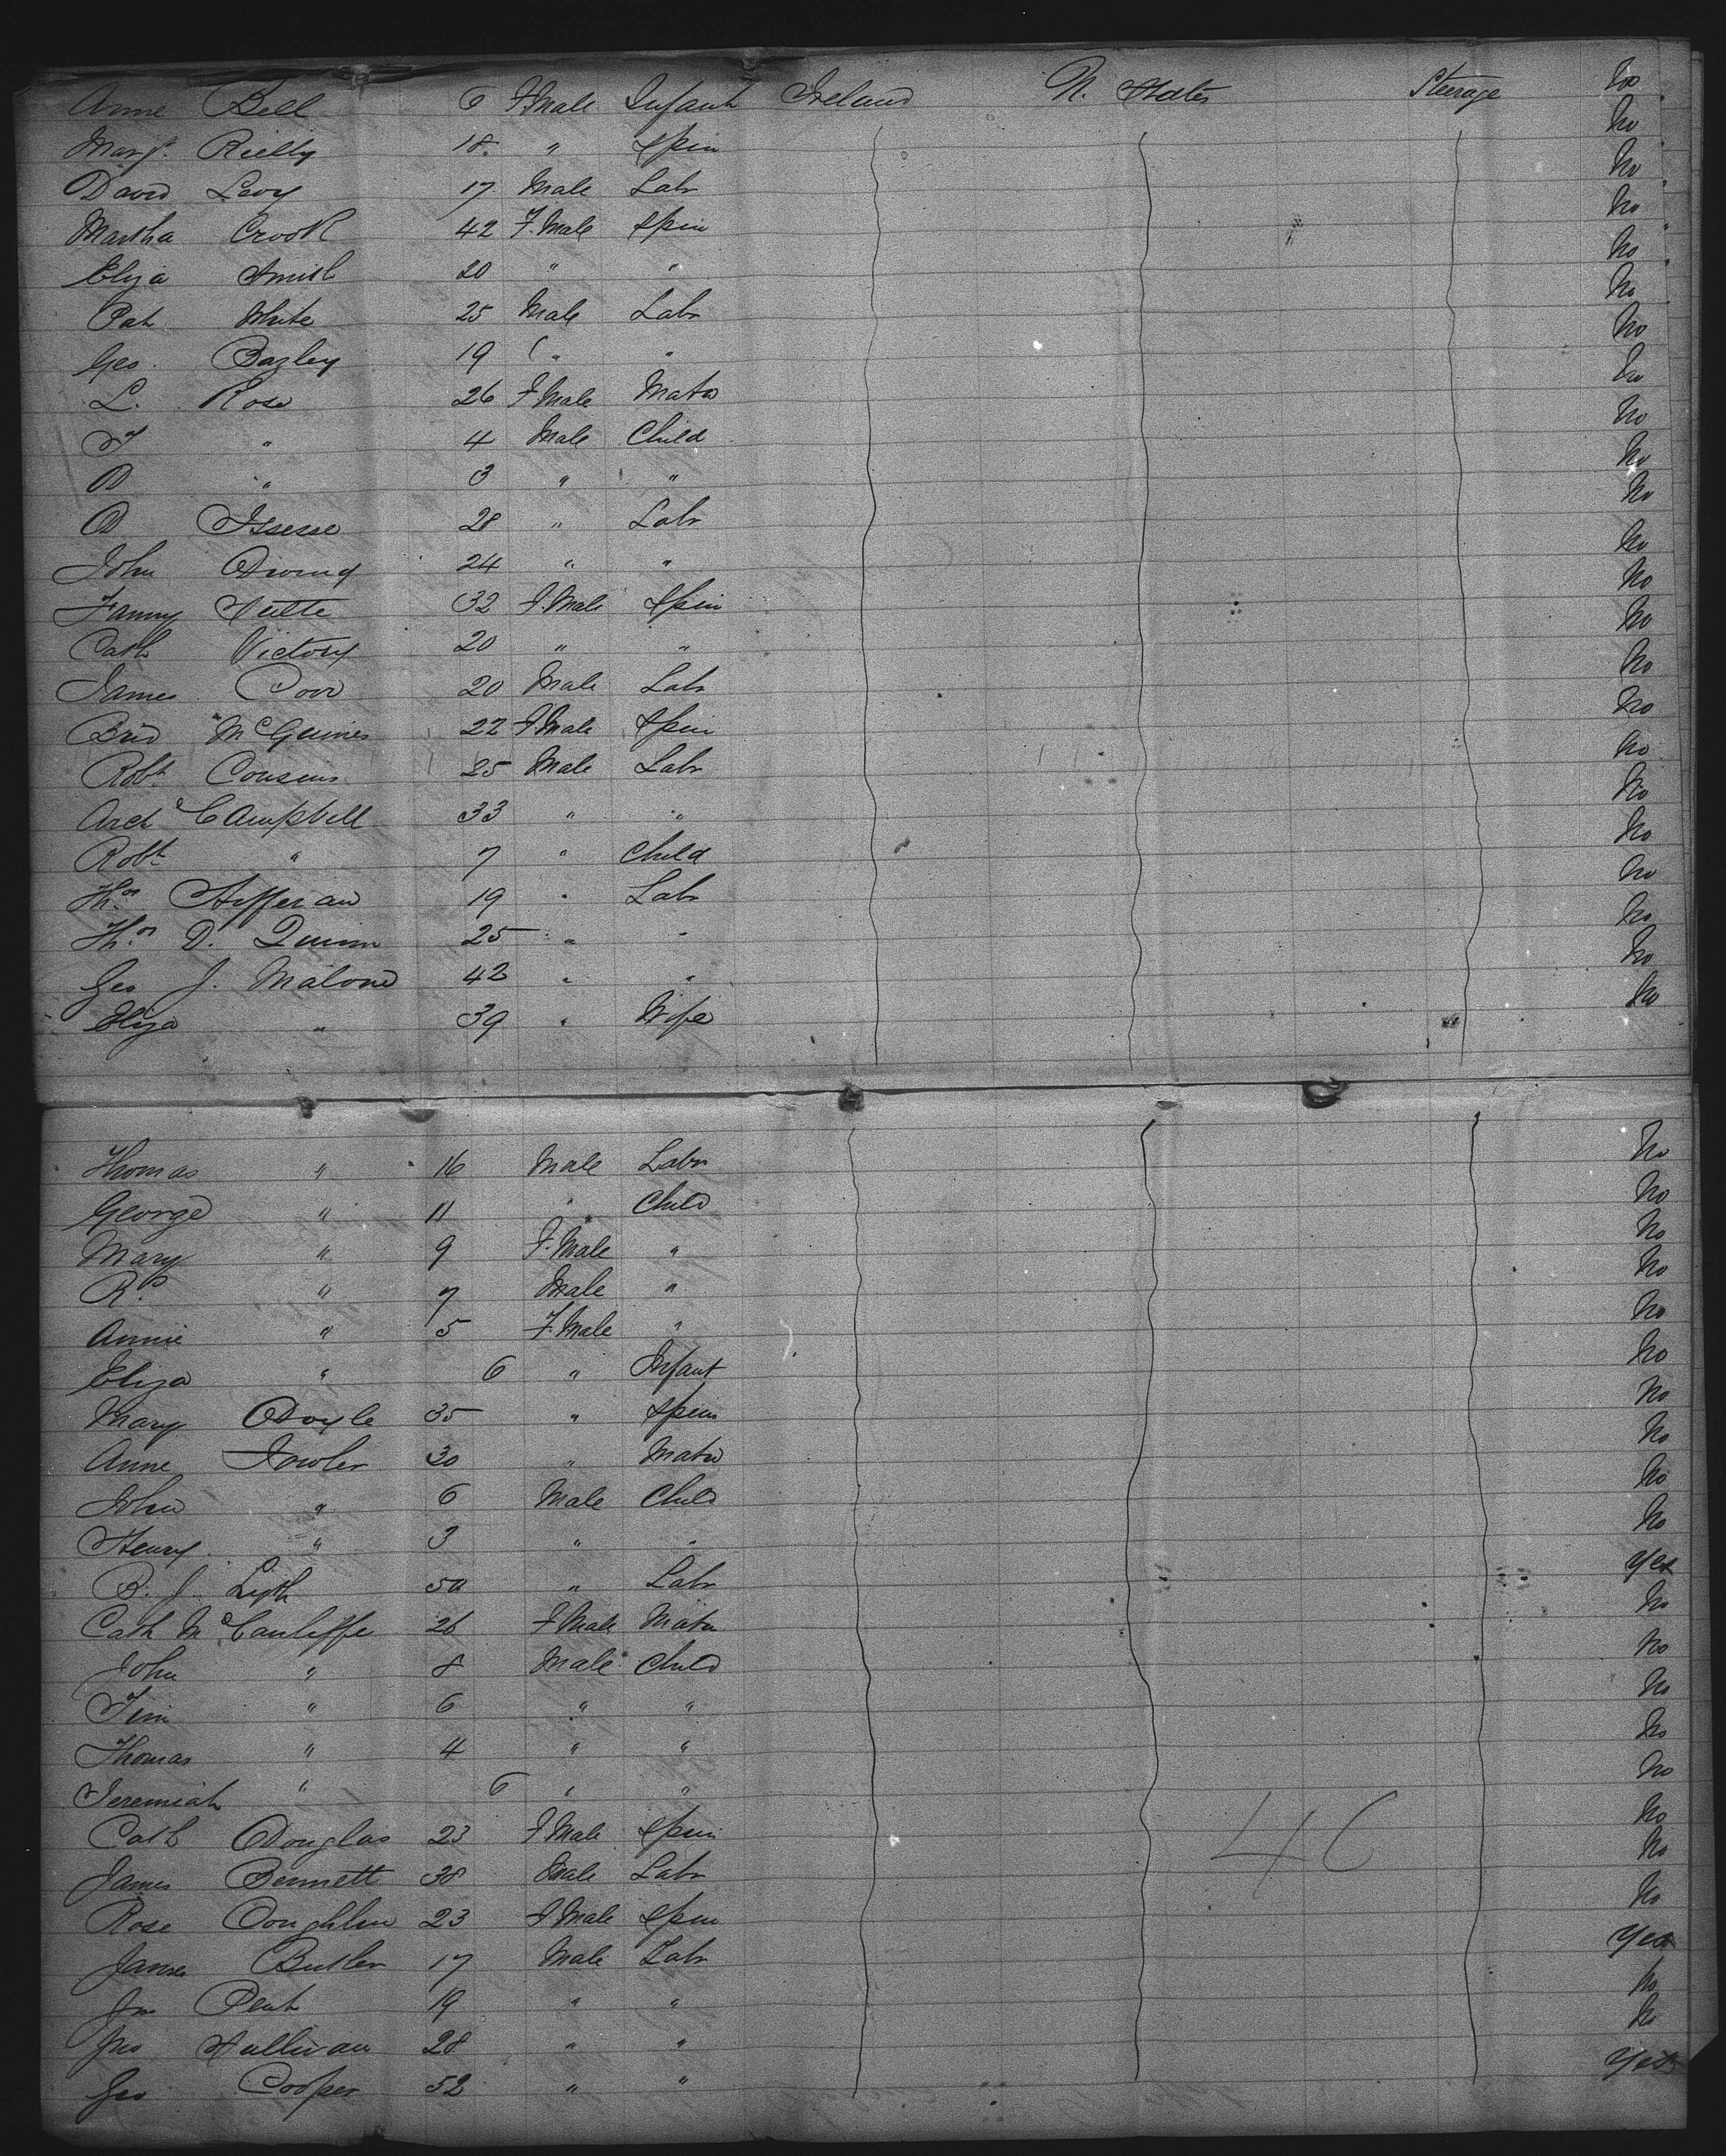 Anne Bell 6 F.Male Infant Ireland U. States Steerage No
Margt. Rielly 18 " Spin No
David Levy 17 Male Labr No
Martha Crook 42 F.Male Spin No
Eliza Smith 20 " " No
Pat White 25 Male Labr No
Geo. Bazley 19 " " No
L. Rose 26 F.Male Matn No
T " 4 Male Child No
D " 3 " " No
D 28 " Labr No
John 24 " " No
Fanny 32 F.Male Spin No
Cath Victory 20 " " No
James Poor 20 Male Labr No
Brid McGuines 22 F.Male Spin No
Robt. Cousens 25 Male Labr No
Arch Campbell 33 " " No
Robt " 7 " Child No
Thos. Hefferan 19 " Labr No
Thos. D. Quinn 25 " " No
Geo J. Malone 42 " " No
Eliza " 39 " Wife No
Thomas " 16 Male Labr No
George " 11 " Child No
Mary " 9 F.Male " No
Rd. " 7 Male " No
Annie " 5 F.Male " No
Eliza " 6 " Infant No
Mary Doyle 35 " Spin No
Anne Fowler 30 " Matn No
John " 6 Male Child No
Henry " 3 " " No
B. J. 50 " Labr Yes
Cath McCauliffe 26 F.Male Matn No
John " 8 Male Child No
Tim " 6 " " No
Thomas " 4 " " No
Jeremiah " 6 " " No
Cath Douglas 23 F.Male Spin No
46
James Bennett 38 Male Labr No
Rose Coughlin 23 F.Male Spin No
James Butler 17 Male Labr Yes
Jno Peut 19 " " No
Jno Sullivan 28 " " No
Geo Cooper 52 " " Yes